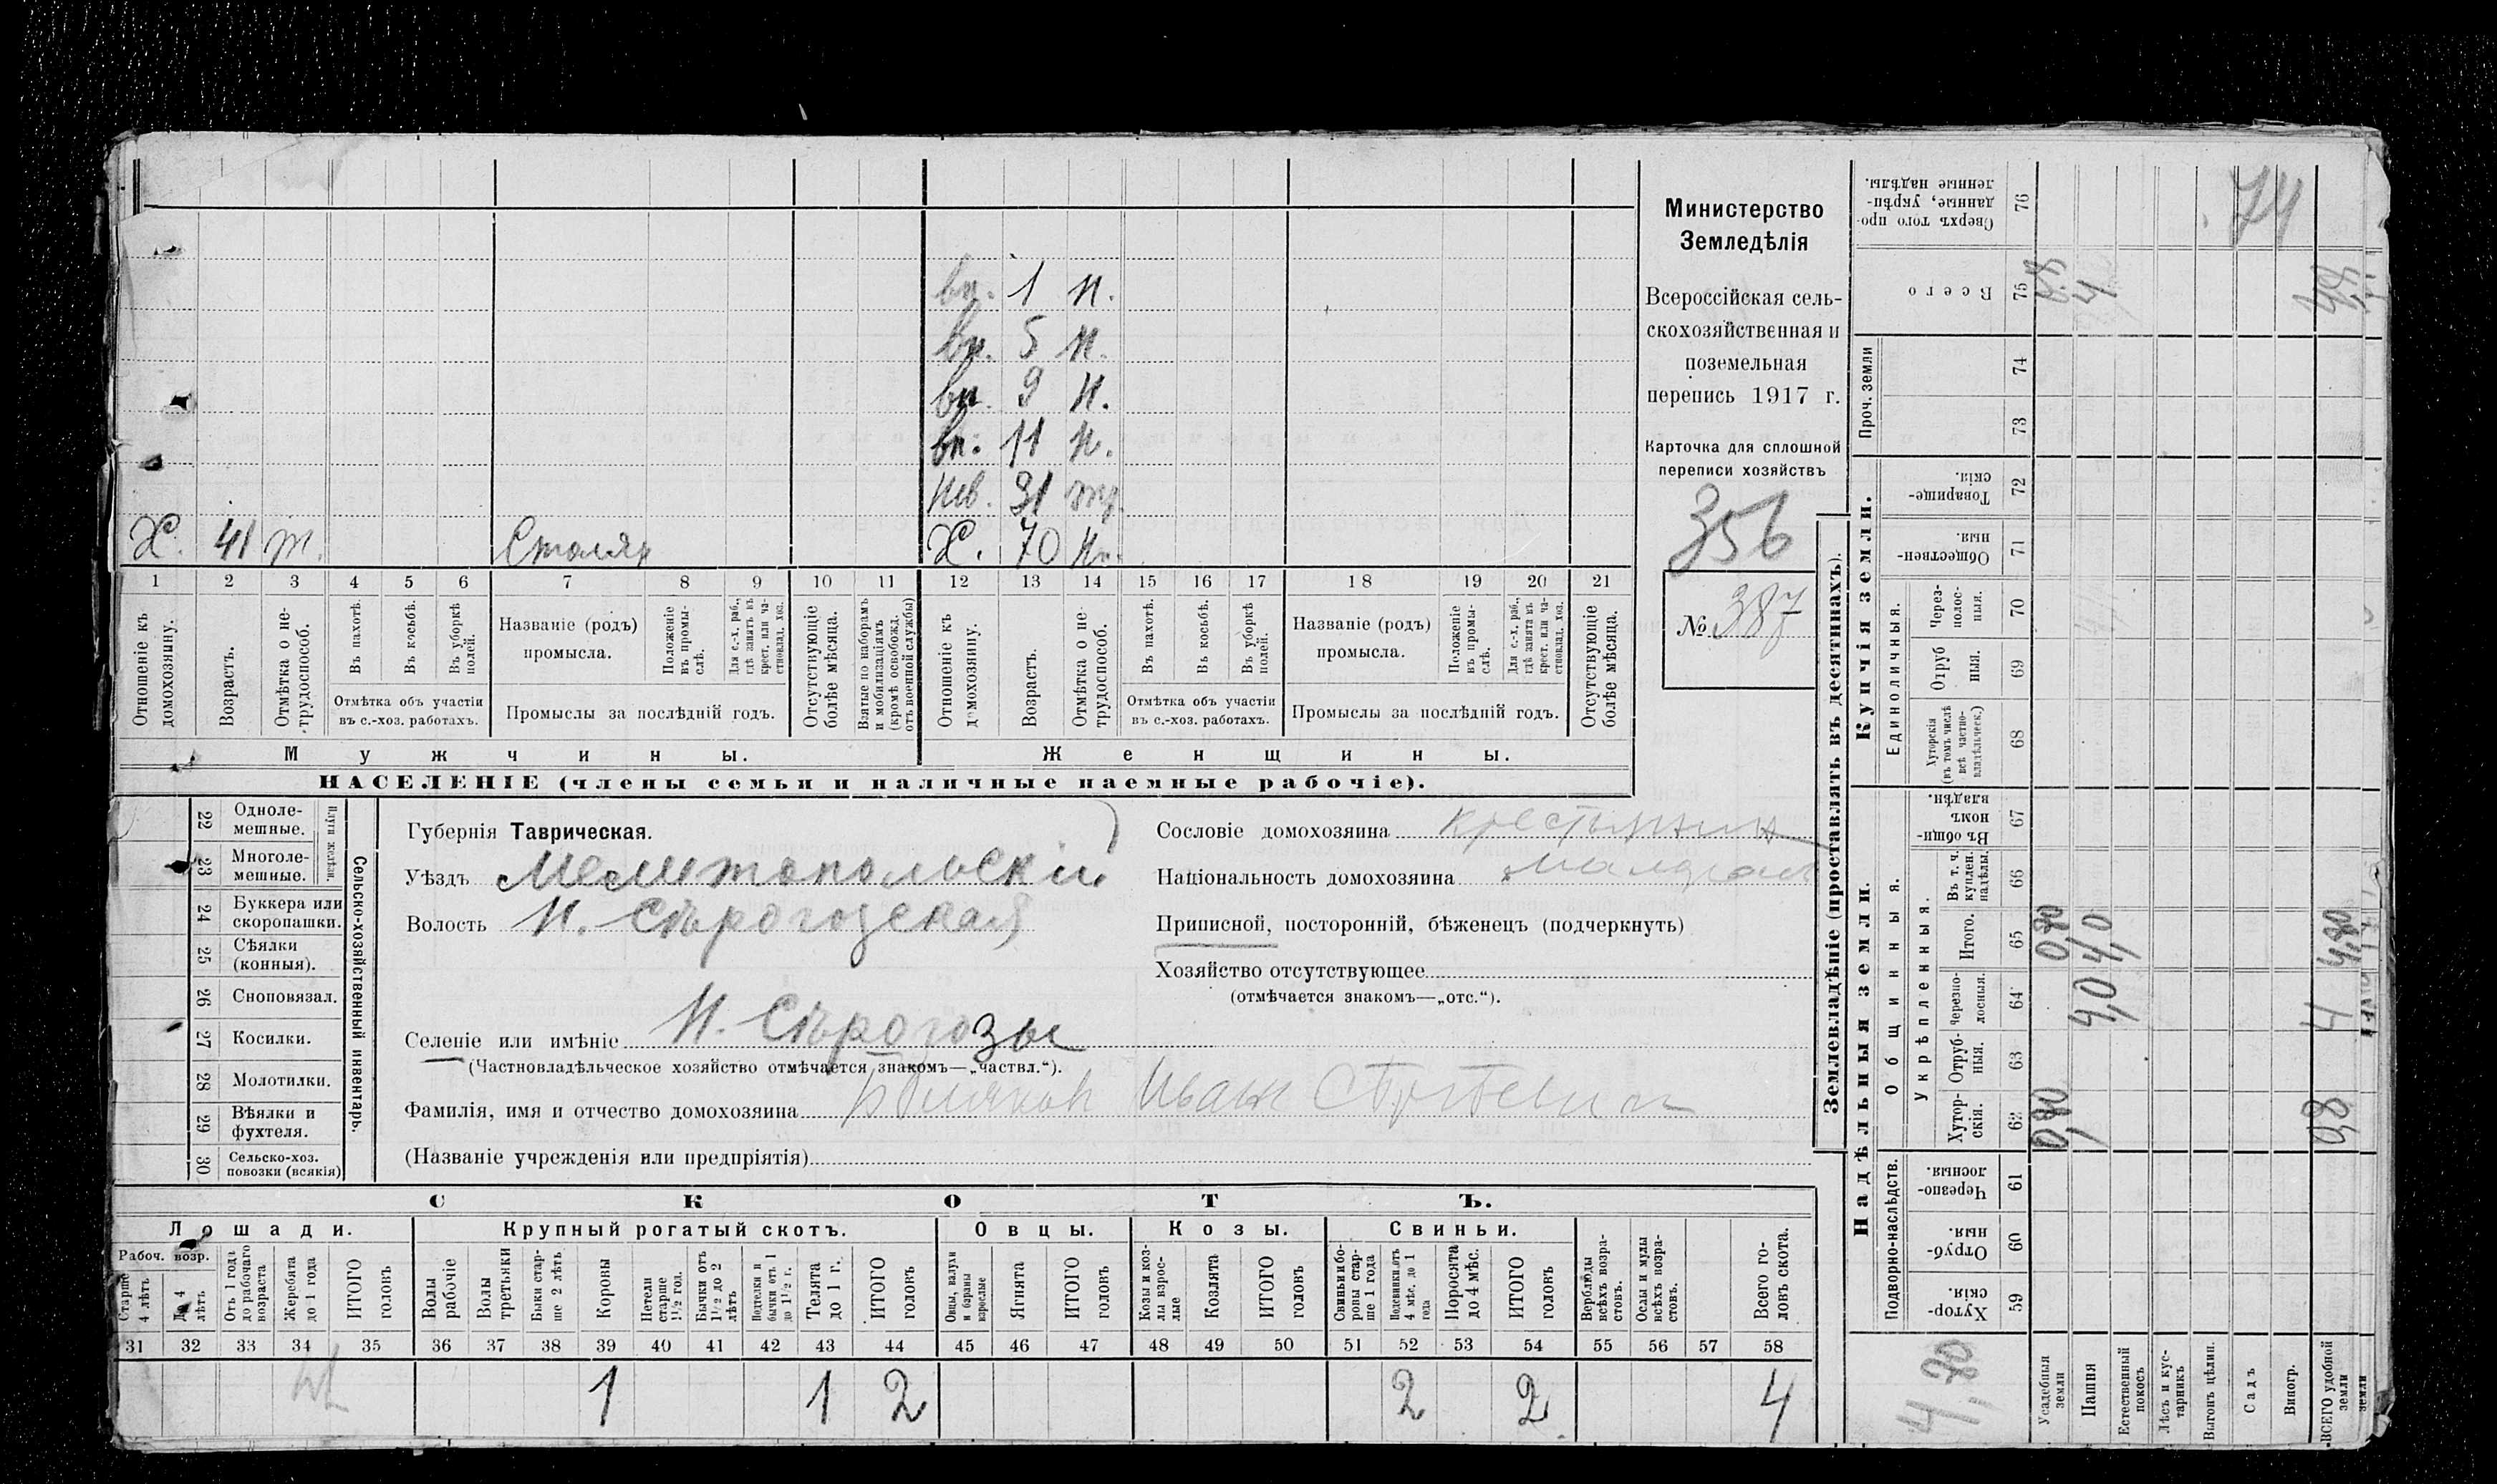 вн. 1 н.
вн. 5 н.
вн. 9 н.
вн. 11 н.
нев. 31
Х. 41 т. Столяр Х. 70 н.
1 2 3 4 5 6 7 8 9 10 11 12 13 14 15 16 17 18 19 20 21
Отношеніе къ домохозяину.
Возрастъ.
Отмѣтка о нетрудоспособ.
Въ пахотѣ.
Въ косьбѣ.
Въ уборкѣ полей.
Отмѣтка объ участіи въ с.-хоз. работахъ.
Названіе (родъ) промысла.
Положеніе въ промыслѣ.
Для с.-х. раб., гдѣ занятъ въ крест. или частновлад. хоз.
Промыслы за послѣдній годъ.
Отсутствующіе болѣе мѣсяца.
Взятые по наборамъ и мобилизаціямъ (кромѣ освобожд. отъ военной службы)
Отношеніе къ домохозяину.
Возрастъ.
Отмѣтка о нетрудоспособ.
Въ пахотѣ.
Въ косьбѣ.
Въ уборкѣ полей.
Отмѣтка объ участіи въ с.-хоз. работахъ.
Названіе (родъ) промысла.
Положеніе въ промыслѣ.
Для с.-х. раб., гдѣ занята въ крест. или частновлад. хоз.
Промыслы за послѣдній годъ.
Отсутствующіе болѣе мѣсяца.
Мужчины. Женщины.
НАСЕЛЕНІЕ (члены семьи и наличные наемные рабочіе).
Министерство
Земледѣлія
Всероссійская сель-
скохозяйственная и
поземельная
перепись 1917 г.
Карточка для сплошной
переписи хозяйствъ
356
№ 387
22 Однолемешные.
23 Многолемешные.
Плуги желѣзн.
24 Буккера или скоропашки.
25 Сѣялки (конныя).
26 Сноповязал.
27 Косилки.
28 Молотилки.
29 Вѣялки и фухтеля.
30 Сельско-хоз. повозки (всякія)
Сельско-хозяйственный инвентарь.
Губернія Таврическая.
Уѣздъ Мелитопольскій
Волость Н. Сѣрогозская
Селеніе или имѣніе Н. Сѣрогозы
(Частновладѣльческое хозяйство отмѣчается знакомъ—„частвл.“).
Фамилія, имя и отчество домохозяина Иван
(Названіе учрежденія или предпріятія)
Сословіе домохозяина крестьянин
Національность домохозяина
Приписной, посторонній, бѣженецъ (подчеркнуть)
Хозяйство отсутствующее
(отмѣчается знакомъ—„отс.“).
СКОТЪ.
Лошади. Крупный рогатый скотъ. Овцы. Козы. Свиньи.
Рабоч. возр.
Старше 4 лѣтъ
До 4 лѣтъ
Отъ 1 года до рабочаго возраста
Жеребята до 1 года
ИТОГО головъ
Волы рабочіе
Волы третьяки
Быки старше 2 лѣтъ
Коровы
Нетели старше 1½ год.
Бычки отъ 1½ до 2 лѣтъ
Подтелки и бычки отъ 1 до 1½ г.
Телята до 1 г.
ИТОГО головъ
Овцы, валухи и бараны взрослые
Ягнята
ИТОГО головъ
Козы и козлы взрослые
Козлята
ИТОГО головъ
Свиньи и боровы старше 1 года
Подсвинки отъ 4 мѣс. до 1 года
Поросята до 4 мѣс.
ИТОГО головъ
Верблюды всѣхъ возрастовъ.
Ослы и мулы всѣхъ возрастовъ.
Всего головъ скота.
31 32 33 34 35 36 37 38 39 40 41 42 43 44 45 46 47 48 49 50 51 52 53 54 55 56 57 58
1 1 2 2 2 4
Землевладѣніе (проставлять въ десятинахъ).
Надѣльныя земли.
Купчія земли.
Проч. земли
Подворно-наслѣдств.
Общинныя.
Укрѣпленныя.
Единоличныя.
Хуторскія. 59
Отрубныя. 60
Черезполосныя. 61
Хуторскія. 62
Отрубныя. 63
Черезполосныя. 64
Итого. 65
Въ т. ч. куплен. надѣлы. 66
Въ общинномъ владѣн. 67
Хуторскія (въ томъ числѣ всѣ частновладѣльческ.) 68
Отрубныя. 69
Черезполосныя. 70
Общественныя. 71
Товарищескія. 72
73
74
Всего 75
Сверхъ того проданные, укрѣпленные надѣлы. 76
Усадебныя земли
Пашня
Естественный покосъ
Лѣсъ и кустарникъ
Выгонъ цѣлин.
Садъ
Виногр.
ВСЕГО удобной земли
4,80
0,80
0,80
4,0
4,0
0,8
4
4,80
74